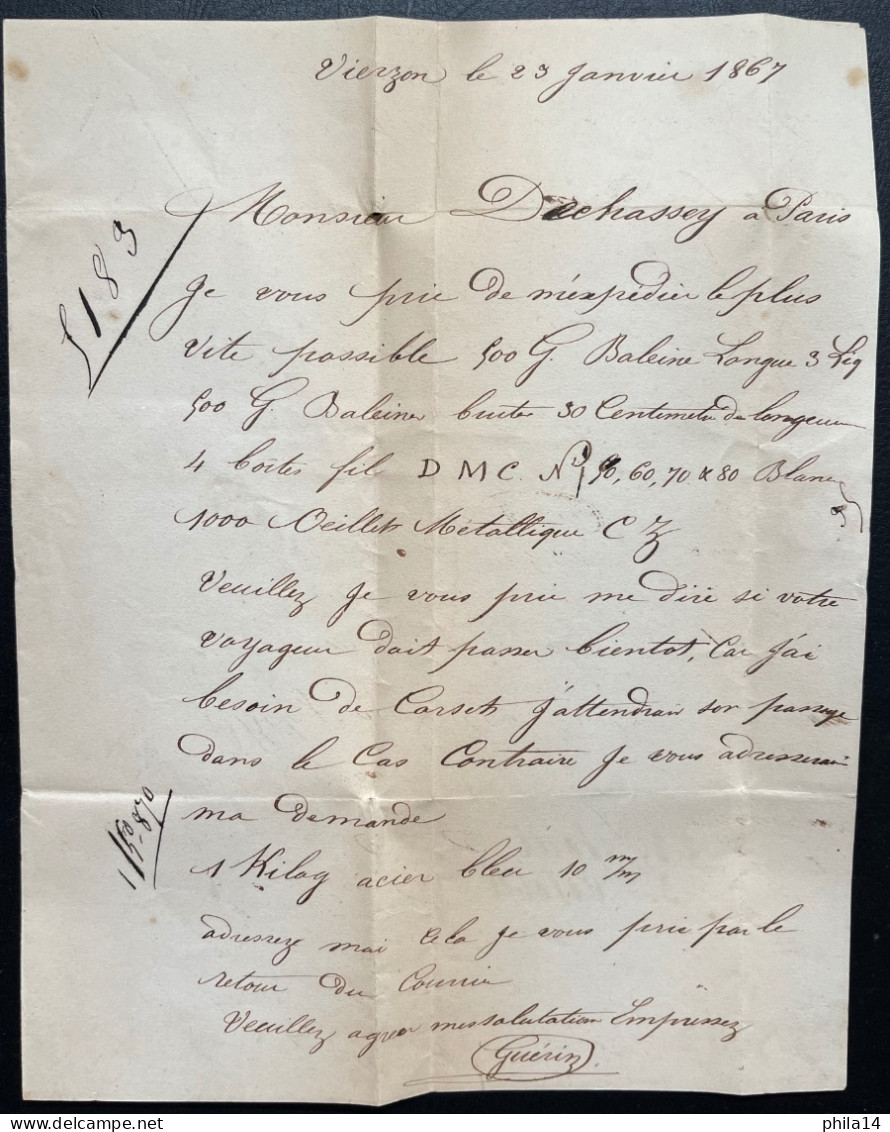 Vierzon le 23 Janvier 1867
Monsieur Dechassey a Paris
183
Je vous prie de m'éxpédier le plus
Vite possible 500 G. Baleine Longue 3 Lig
500 G. Baleine 30 Centimetre de longeur
4 boîtes fil D M C. Nº 50, 60, 70 & 80 Blanc
1000 Oeillets Métallique C
Veuillez Je vous prie me dire si votre
voyageur doit passer bientot, Car J'ai
besoin de Corsets J'attendrai son passage
dans le Cas Contraire Je vous adresserai
ma demande
1 Kilog acier bleu 10 m/m
adressez moi cela Je vous prie par le
retour du Courrier
Veuillez agreer mes salutation Empressez
Guérin
phila14